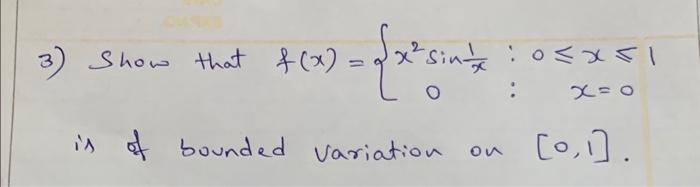 3) Show that f(x) = { x² sin 1/x : 0 ≤ x ≤ 1
0 : x = 0
is of bounded variation on [0,1].